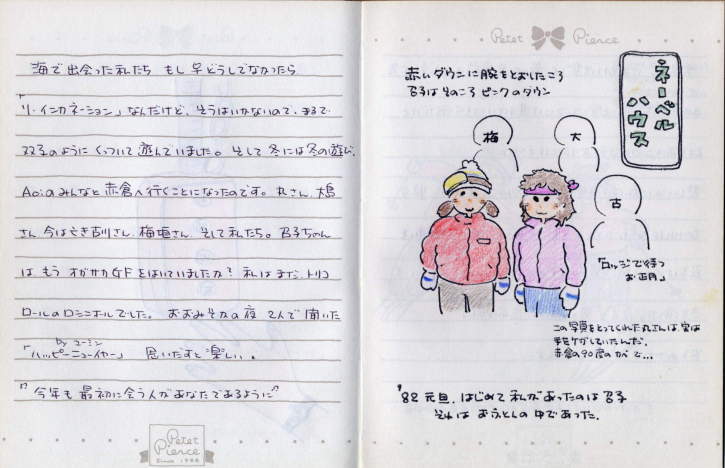 海で出会った私たち もし 早どうしでなかったら
「リ・インカネーション」なんだけど、そうはいかないので、まるで
双子のように くっついて 遊んでいました。そして 冬には冬の遊び、
Aoiのみんなと 赤倉へ 行くことになったのです。丸さん、大
さん 今は亡き 古川さん 梅垣さん、そして私たち。
は もう オガサカGFをはいていましたか? 私はまだ トリコ
ロールのロシニョールでした。おおみそかの夜 2人で聞いた
by ユーミン
「ハッピーニューイヤー」 思いだすと楽しい。
"今年も 最初に会う人が あなたであるように"
Petet Pierce
Since 1988
Petet Pierce
赤いダウンに腕をとおしたころ
はそのころ ピンクのダウン
ネーベルハウス
梅
大
古
「ロッジで待つお正月」
この写真をとってくれた丸さんは実は
手をケガしていたんだ.
赤倉の90度のカベで…
'82 元旦、はじめて私があったのは
それは おふとんの中であった.